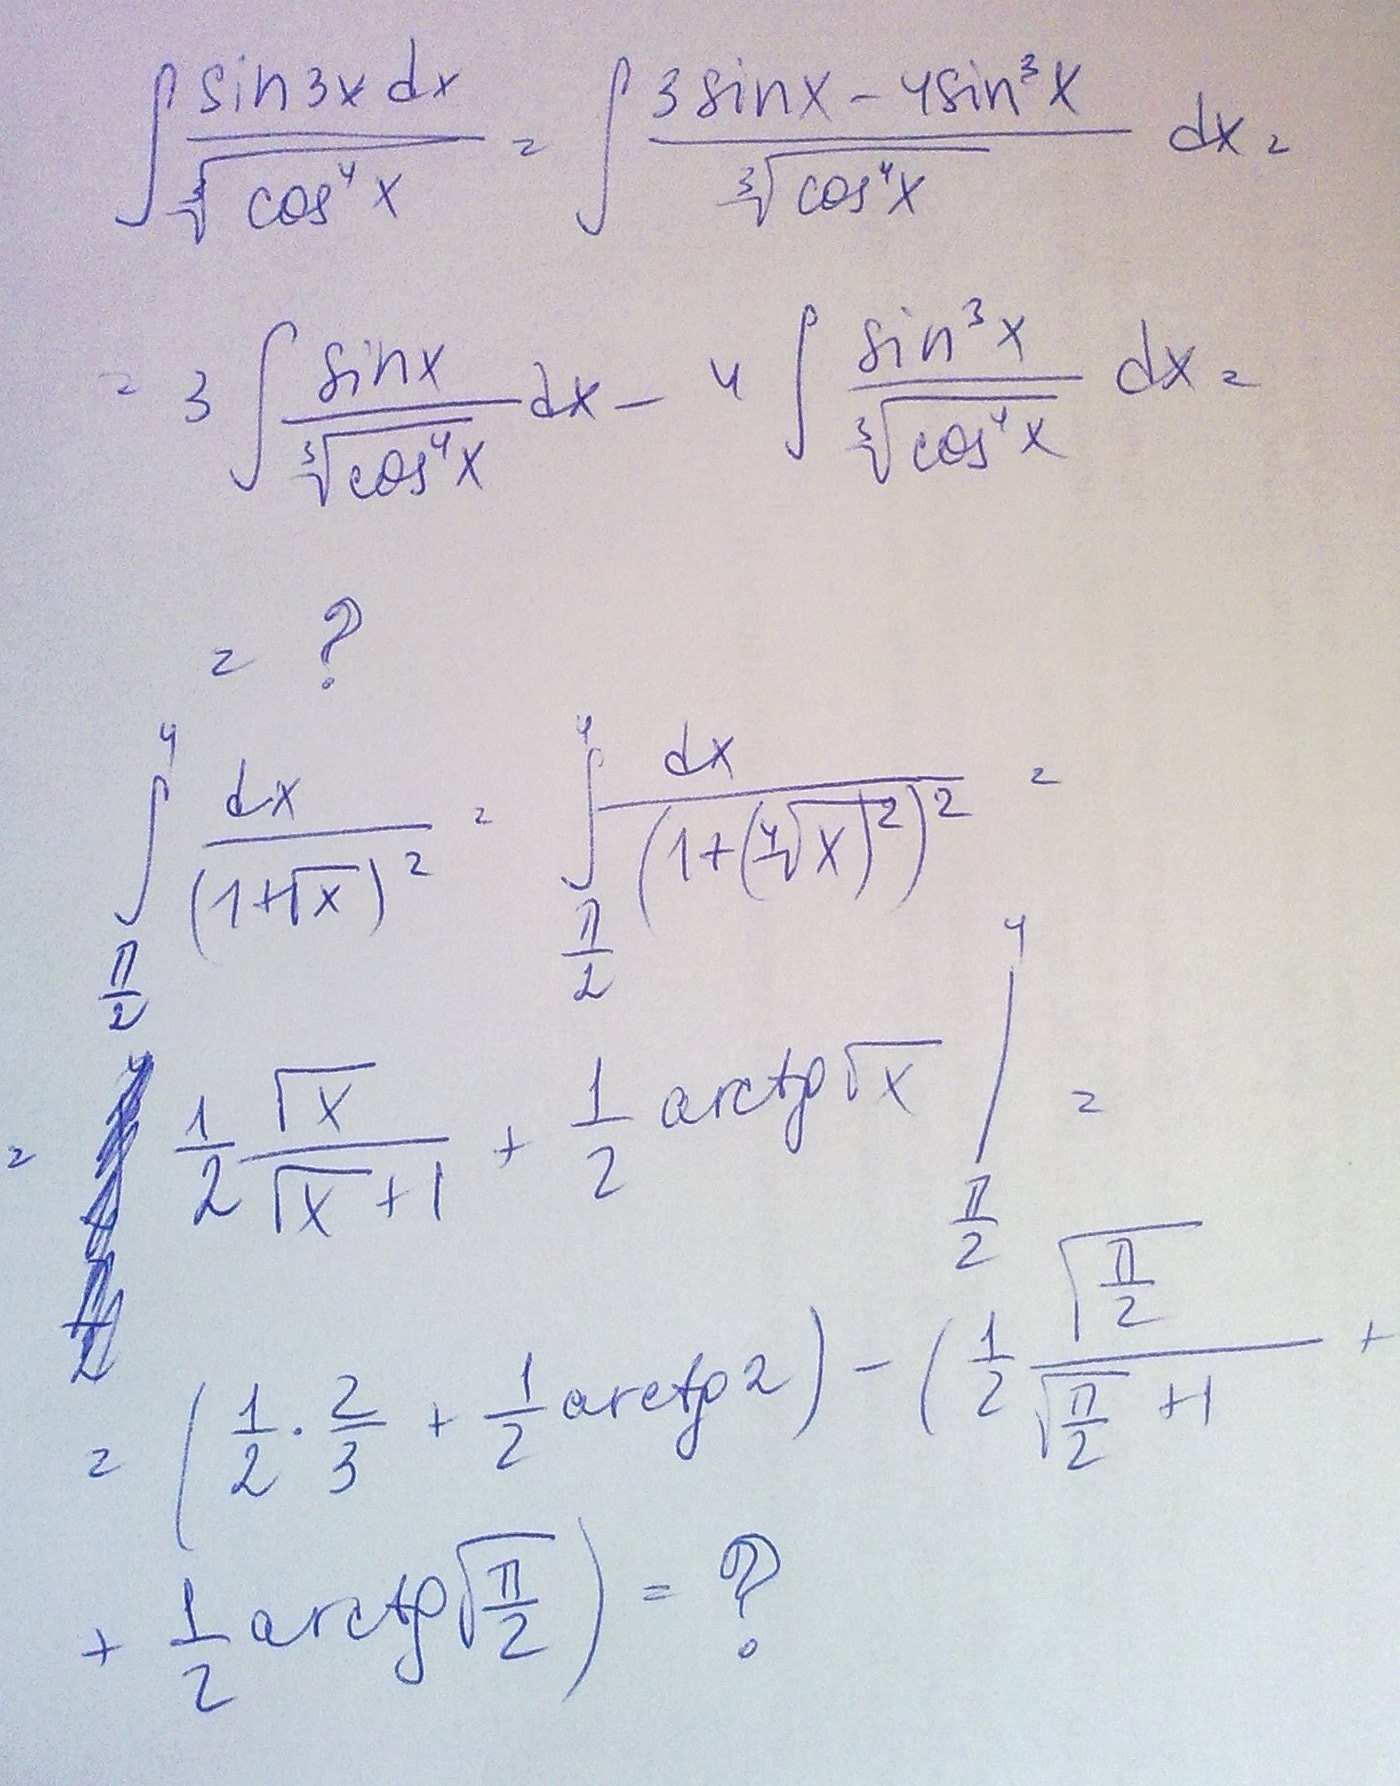 ∫ sin3x dx / ∛(cos⁴x) = ∫ (3sinx - 4sin³x) / ∛(cos⁴x) dx =
= 3 ∫ sinx / ∛(cos⁴x) dx - 4 ∫ sin³x / ∛(cos⁴x) dx =
= ?
∫_{π/2}^{4} dx / (1+√x)² = ∫_{π/2}^{4} dx / (1+(∜x)²)² =
= 1/2 √x / (√x+1) + 1/2 arctg√x |_{π/2}^{4} =
= (1/2 · 2/3 + 1/2 arctg2) - (1/2 √(π/2) / (√(π/2) +1) +
+ 1/2 arctg√(π/2)) = ?